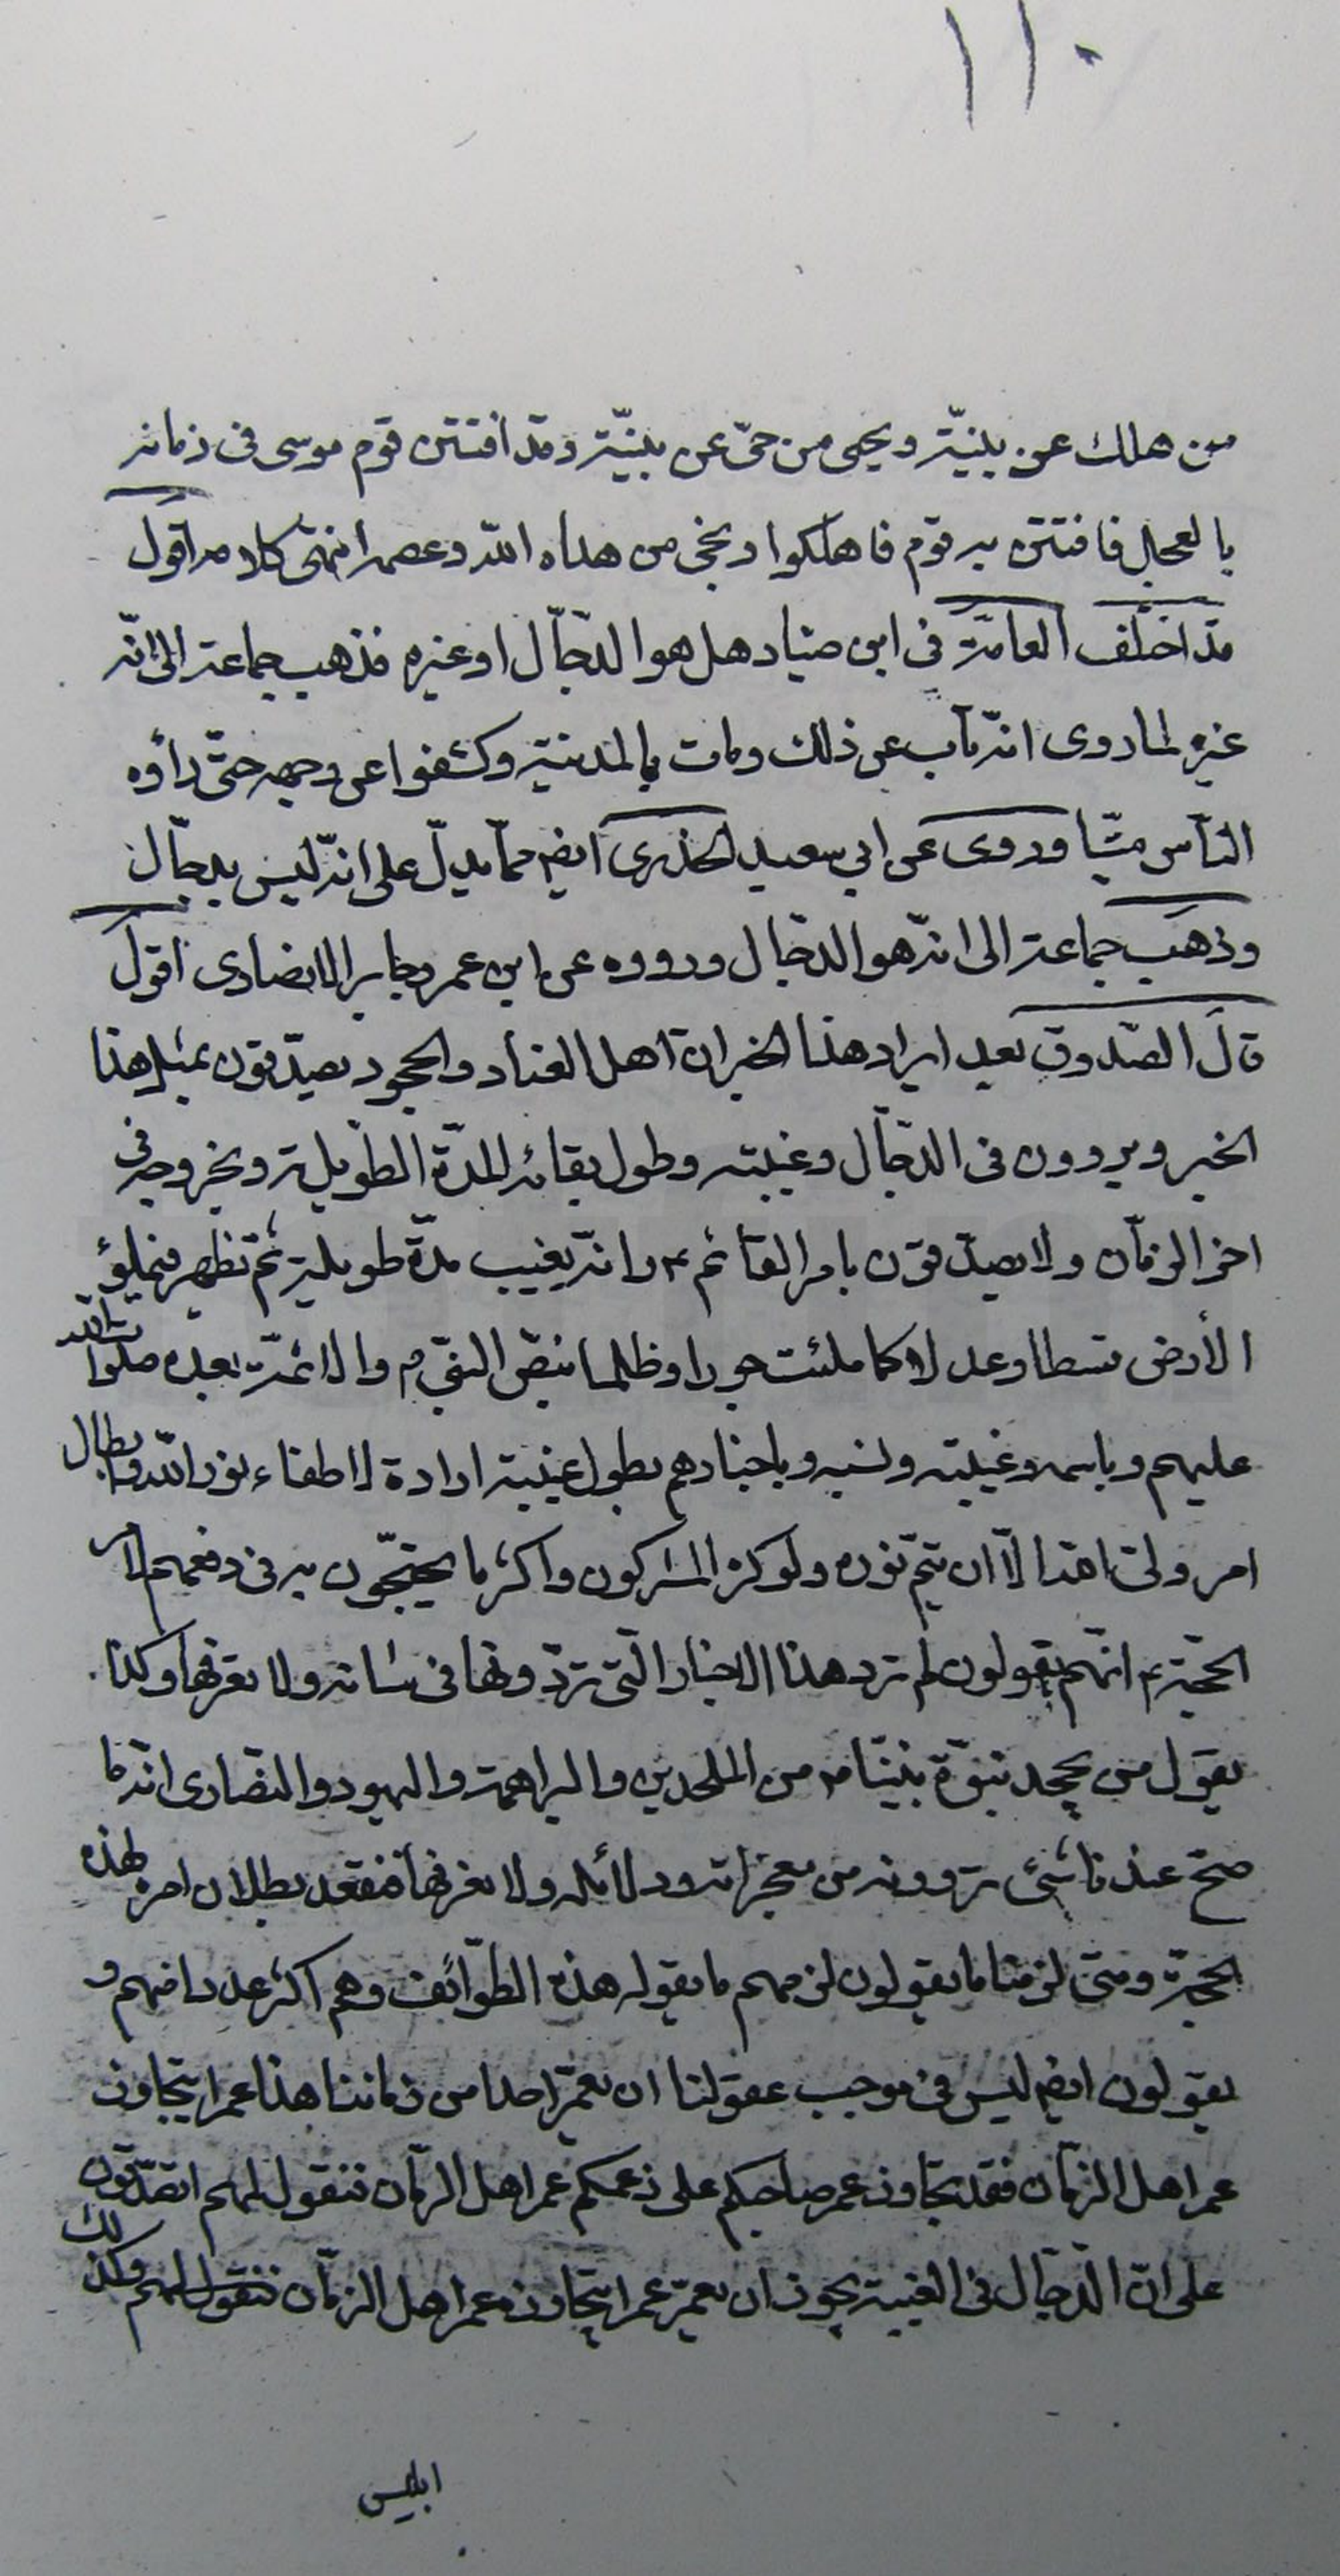 ١١٠
من هلك عن بينة ويحيى من حى عن بينة وقد افتتن قوم موسى فى زمانه
بالعجل فافتتن به قوم فاهلكوا ونجى من هداه الله وعصمه انتهى كلامه اقول
قد اختلف العامة فى ابن صياد هل هو الدجال او غيره فذهب جماعة الى انه
غيره لما روى انه تاب عن ذلك ومات بالمدينة وكشفوا عن وجهه حتى رأوه
الناس ميتا وروى عن ابى سعيد الخدرى ايضا مما يدل على انه ليس بدجال
وذهب جماعة الى انه هو الدجال ورووه عن ابن عمر وجابر الانصارى اقول
قال الصدوق بعد ايراد هذا الخبر ان اهل العناد والجحود يصدقون بمثل هذا
الخبر ويروون فى الدجال وغيبته وطول بقائه المدة الطويلة وبخروجه فى
اخر الزمان ولا يصدقون بامر القائم ع وانه يغيب مدة طويلة ثم تظهر فيملؤ
الأرض قسطا وعدلا كما ملئت جورا وظلما بنص النبى ص والائمة بعده صلوات الله
عليهم وباسمه وغيبته ونسبه وباخبارهم بطول غيبته ارادة لاطفاء نور الله وابطال
امر ولى الله الا ان يتم نوره ولو كره المشركون واكثر ما يحتجون به فى دفعهم لامر
الحجة ع انهم يقولون لم ترد هذا الاخبار التى تروونها فى شانه ولا نعرفها وكذا
يقول من يجحد نبوة نبينا ص من الملحدين والبراهمة واليهود والنصارى انه ما
صح عندنا شىء تروونه من معجزاته ودلائله ولا نعرفها فنقعد بطلان امره لهذه
الحجة ومتى لزمنا ما يقولون لزمهم ما يقوله هذه الطوائف وهم اكثر عددا منهم و
يقولون ايضا ليس فى موجب عقولنا ان يعمر احدا من زماننا هذا عمرا يتجاوز
عمر اهل الزمان فقد تجاوز عمر صاحبكم على زعمكم عمر اهل الزمان فنقول لهم اتصدقون
على ان الدجال فى الغيبة يجوز ان يعمر عمرا يتجاوز عمر اهل الزمان فنقول لهم وكذلك
ابليس